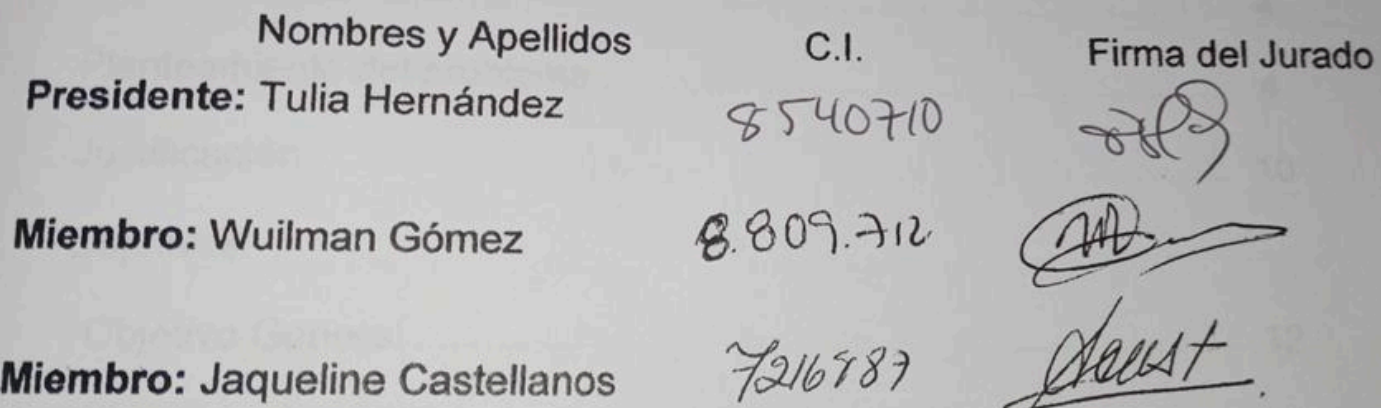 Nombres y Apellidos C.I. Firma del Jurado
Presidente: Tulia Hernández 8540710
Miembro: Wuilman Gómez 8.809.712
Miembro: Jaqueline Castellanos